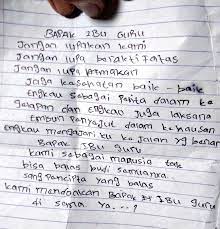 BAPAK IBU GURU
Jangan lupakan kami
Jangan lupa beraktifatas
Jangan lupa
Jaga kesehatan baik - baik
Engkau sebagai Palita dalam ke
Jelapan dan engkau Juga laksana
Embun Panyajul dalam kehausan
engkau mengajari ku ke Jalan yg benar
Bapak IBU Guru
kami sebagai manusia tak
bisa balas budi semuanya.
sang pancipta yang balas
kami mendoakan BAPAK IBU guru
di sana ya...?